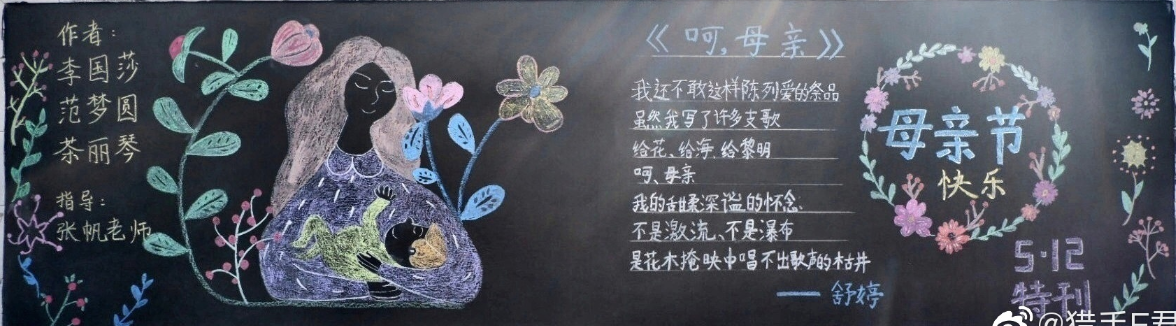 作者:
李国莎
范梦圆
茶丽琴
指导:
张帆老师
《呵,母亲》
我还不敢这样陈列爱的祭品
虽然我写了许多支歌
给花、给海、给黎明
呵、母亲
我的甜柔深谧的怀念、
不是激流、不是瀑布
是花木掩映中唱不出歌声的枯井
——舒婷
母亲节
快乐
5·12
特刊